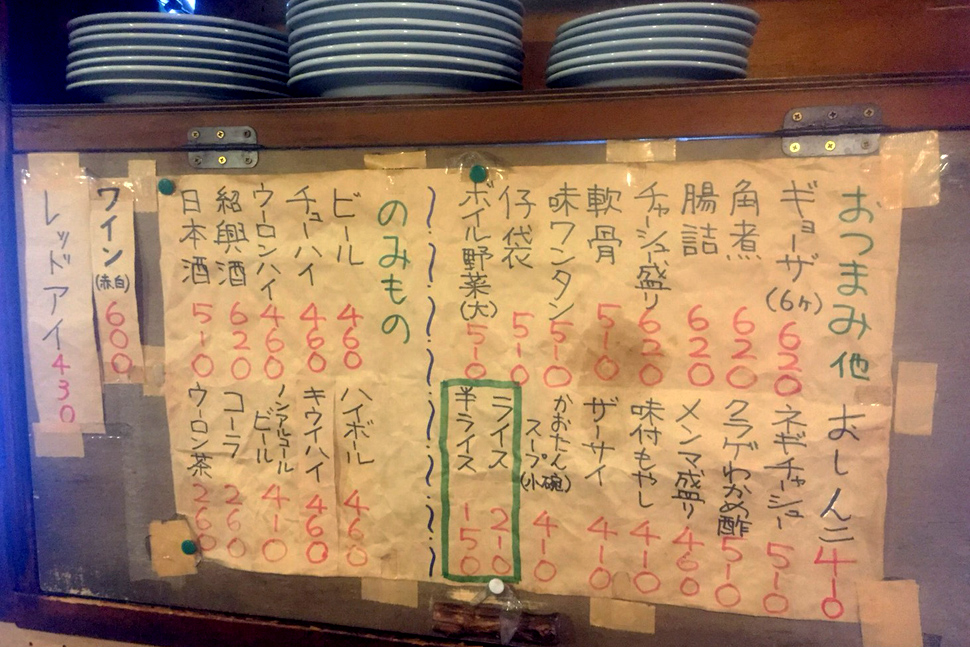 おつまみ他
おしんこ 410
ギョーザ(6ヶ) 620
ネギチャーシュー 510
角煮 620
クラゲわかめ酢 510
腸詰 620
メンマ盛り 460
チャーシュー盛り 620
味付もやし 410
軟骨 510
ザーサイ 410
味ワンタン 510
かおたんスープ(小碗) 410
仔袋 510
ライス 210
ボイル野菜(大) 510
半ライス 150
のみもの
ビール 460
ハイボール 460
チューハイ 460
キウイハイ 460
ウーロンハイ 460
ノンアルコールビール 410
紹興酒 620
コーラ 260
日本酒 510
ウーロン茶 260
ワイン(赤白) 600
レッドアイ 430